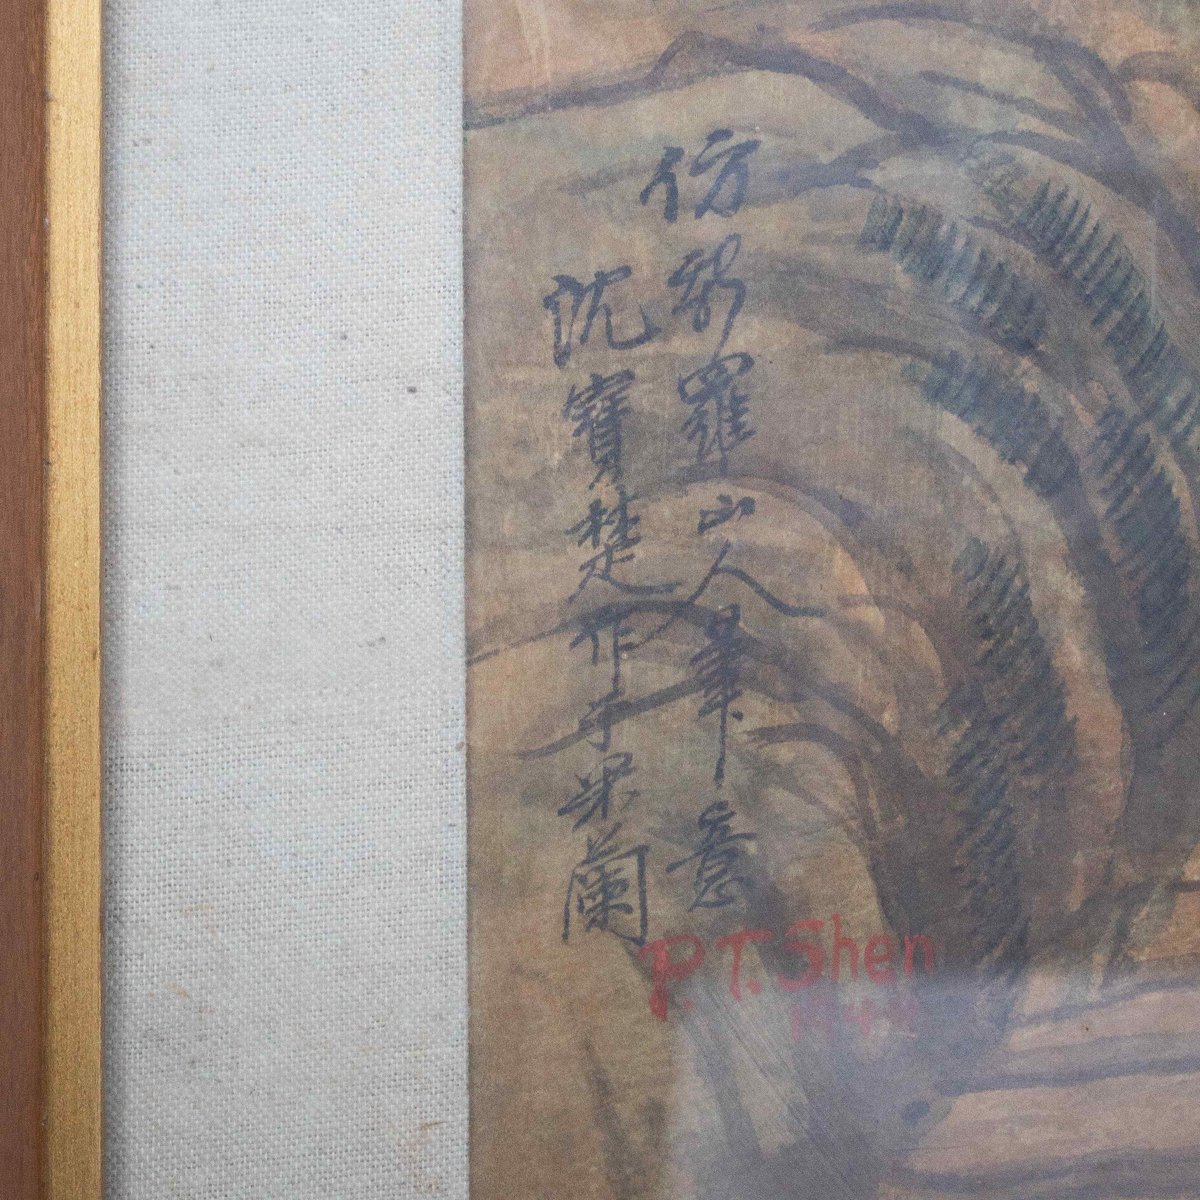 仿新羅山人筆意
沈寶楚作于梁蘭
P.T. Shen